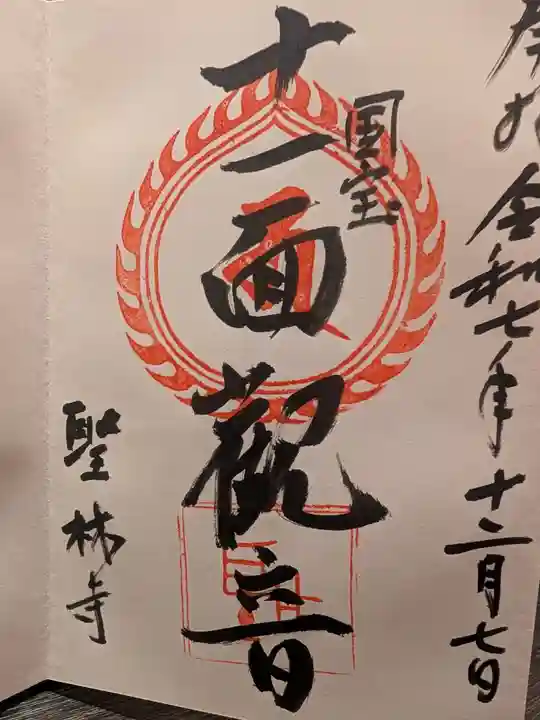 奉拝 令和七年十二月七日
国宝
十一面觀音
聖林寺